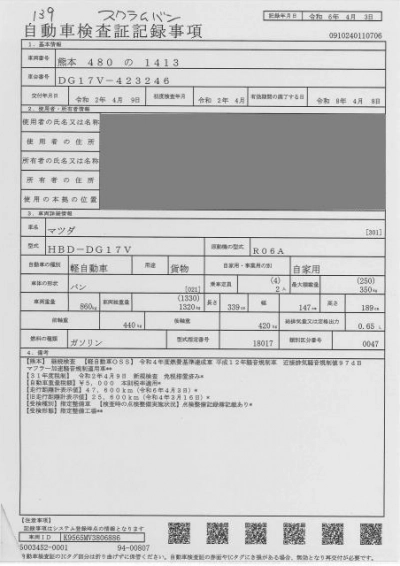 139 スクラムバン
記録年月日 令和 6年 4月 3日
自動車検査証記録事項 0910240110706
1. 基本情報
車両番号 熊本 480 の 1413
車台番号 DG17V-423246
交付年月日 令和 2年 4月 9日 初度検査年月 令和 2年 4月 有効期間の満了する日 令和 8年 4月 8日
2. 使用者・所有者情報
使用者の氏名又は名称
使用者の住所
所有者の氏名又は名称
所有者の住所
使用の本拠の位置
3. 車両詳細情報
車名 マツダ [301]
型式 HBD-DG17V 原動機の型式 R06A
自動車の種別 軽自動車 用途 貨物 自家用・事業用の別 自家用
車体の形状 バン [021] 乗車定員 (4) 2人 最大積載量 (250) 350kg
車両重量 860kg 車両総重量 (1330) 1320kg 長さ 339cm 幅 147cm 高さ 189cm
前軸重 440kg 後軸重 420kg 総排気量又は定格出力 0.65 L
燃料の種類 ガソリン 型式指定番号 18017 類別区分番号 0047
4. 備考
【熊本】 継続検査 【軽自動車OSS】 令和4年度燃費基準達成車 平成12年騒音規制車 近接排気騒音規制値97dB
マフラー加速騒音規制適用車**
【31年度税制】 令和2年4月9日 新規検査 免税措置済み*
【自動車重量税額】¥5,000 本則税率適用*
【走行距離計表示値】47,600km(令和6年4月3日)*
【旧走行距離計表示値】25,600km(令和4年3月16日)*
【受検種別】指定整備車 【検査時の点検整備実施状況】点検整備記録簿記載あり*
【受検形態】指定整備工場**
【注意事項】
記録事項はシステム登録時点の情報となります
車両ID K9565MV3806886
5003452-0001 94-00807
自動車検査証のICタグ部分は折り曲げずに保管ください。自動車検査証の券面やICタグにき損がある場合、無効となり再交付が必要です。